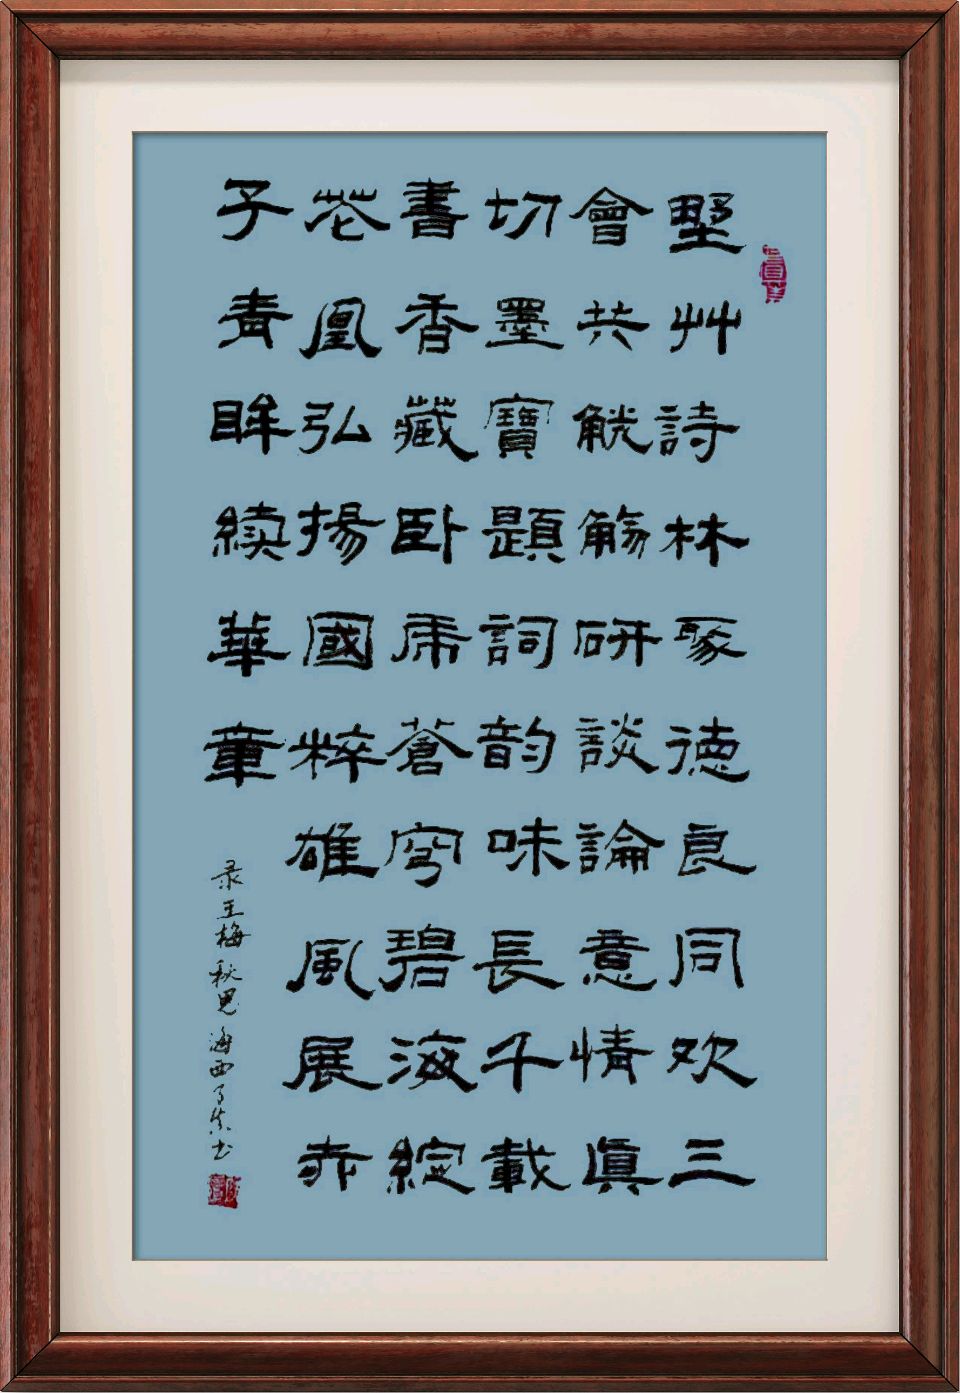 墅艸詩林琢德良同欢三
會共觥觞研談論意情眞
切墨寶題詞韵味長千載
書香藏卧虎蒼穹碧海綻
花凰弘揚國粹雄風展赤
子青眸續華章
录王梅秋思海西书